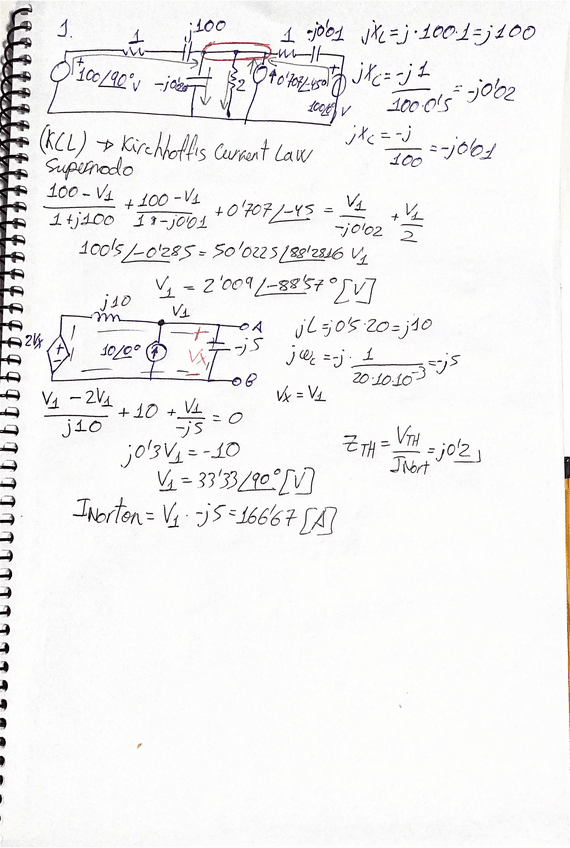 1.
1 j100 1 -j0'01 jXL=j·100·1=j100
+ 100/90° V -j0'02 2 0'707/-45 + V
jXc = -j1 / 100·0'5 = -j0'02
jXc = -j / 100 = -j0'01
(KCL) → Kirchhoff's Current Law
Supernodo
100-V1 / 1+j100 + 100-V1 / 1+-j0'01 + 0'707/-45 = V1 / -j0'02 + V1 / 2
100'5/-0'285 = 50'0225/88'2816 V1
V1 = 2'009/-88'57° [V]
j10 V1 A
2Vx + - 10/0° + Vx - -j5 B
jL=j0'5·20=j10
jωc=-j· 1 / 20·10·10⁻³ =-j5
Vx = V1
V1 - 2V1 / j10 + 10 + V1 / -j5 = 0
j0'3V1 = -10
V1 = 33'33/90° [V]
ZTH = VTH / INort = j0'2
INorton = V1 · -j5 = 166'67 [A]